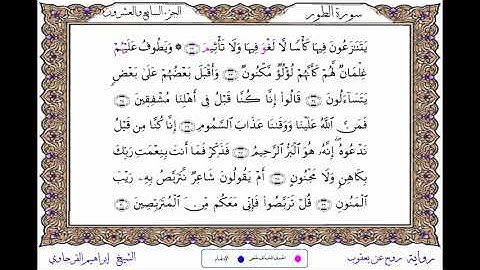 سورة الطور
الجزء السابع والعشرون
يَتَنَٰزَعُونَ فِيهَا كَأۡسٗا لَّا لَغۡوَ فِيهَا وَلَا تَأۡثِيمَ ۞ وَيَطُوفُ عَلَيۡهُمۡ
غِلۡمَانٞ لَّهُمۡ كَأَنَّهُمۡ لُؤۡلُؤٞ مَّكۡنُونٞ وَأَقۡبَلَ بَعۡضُهُمۡ عَلَىٰ بَعۡضٖ
يَتَسَآءَلُونَ قَالُوٓاْ إِنَّا كُنَّا قَبۡلُ فِيٓ أَهۡلِنَا مُشۡفِقِينَ
فَمَنَّ ٱللَّهُ عَلَيۡنَا وَوَقَىٰنَا عَذَابَ ٱلسَّمُومِ إِنَّا كُنَّا مِن قَبۡلُ
نَدۡعُوهُۖ إِنَّهُۥ هُوَ ٱلۡبَرُّ ٱلرَّحِيمُ فَذَكِّرۡ فَمَآ أَنتَ بِنِعۡمَتِ رَبِّكَ
بِكَاهِنٖ وَلَا مَجۡنُونٍ أَمۡ يَقُولُونَ شَاعِرٞ نَّتَرَبَّصُ بِهِۦ رَيۡبَ
ٱلۡمَنُونِ قُلۡ تَرَبَّصُواْ فَإِنِّي مَعَكُم مِّنَ ٱلۡمُتَرَبِّصِينَ
رواية روح عن يعقوب
الإدغام
الشيخ إبراهيم الفرجاوي